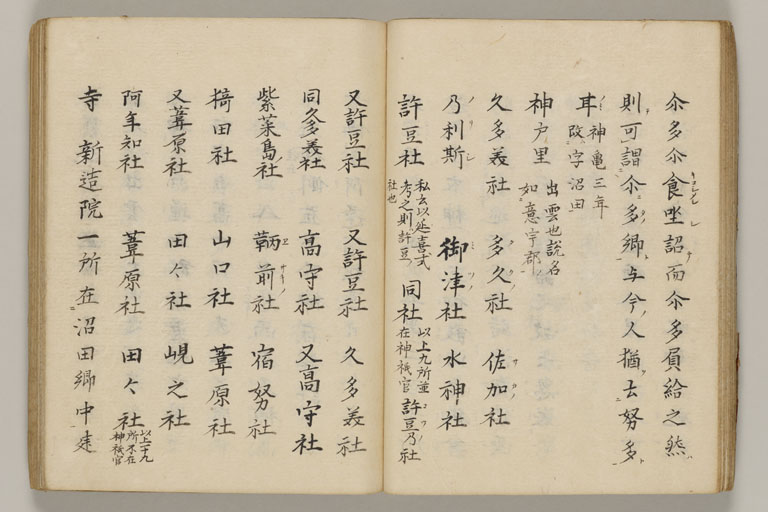 尒多尒食坐詔而尒多負給之然
則可謂尒多郷与今人猶云努多
耳神亀三年改字沼田
神戸里出雲也説名如意宇郡
久多美社 多久社 佐加社
乃利斯 御津社 水神社
許豆社私云以延喜式考之則許豆社也 同社以上九所並在神祇官 許豆乃社
又許豆社 又許豆社 久多美社
同久多美社 高守社 又高守社
紫菜島社 鞆前社 宿努社
埼田社 山口社 葦原社
又葦原社 田々社 峴之社
阿年知社 葦原社 田々社以上十九所不在神祇官
寺 新造院一所在沼田郷中建